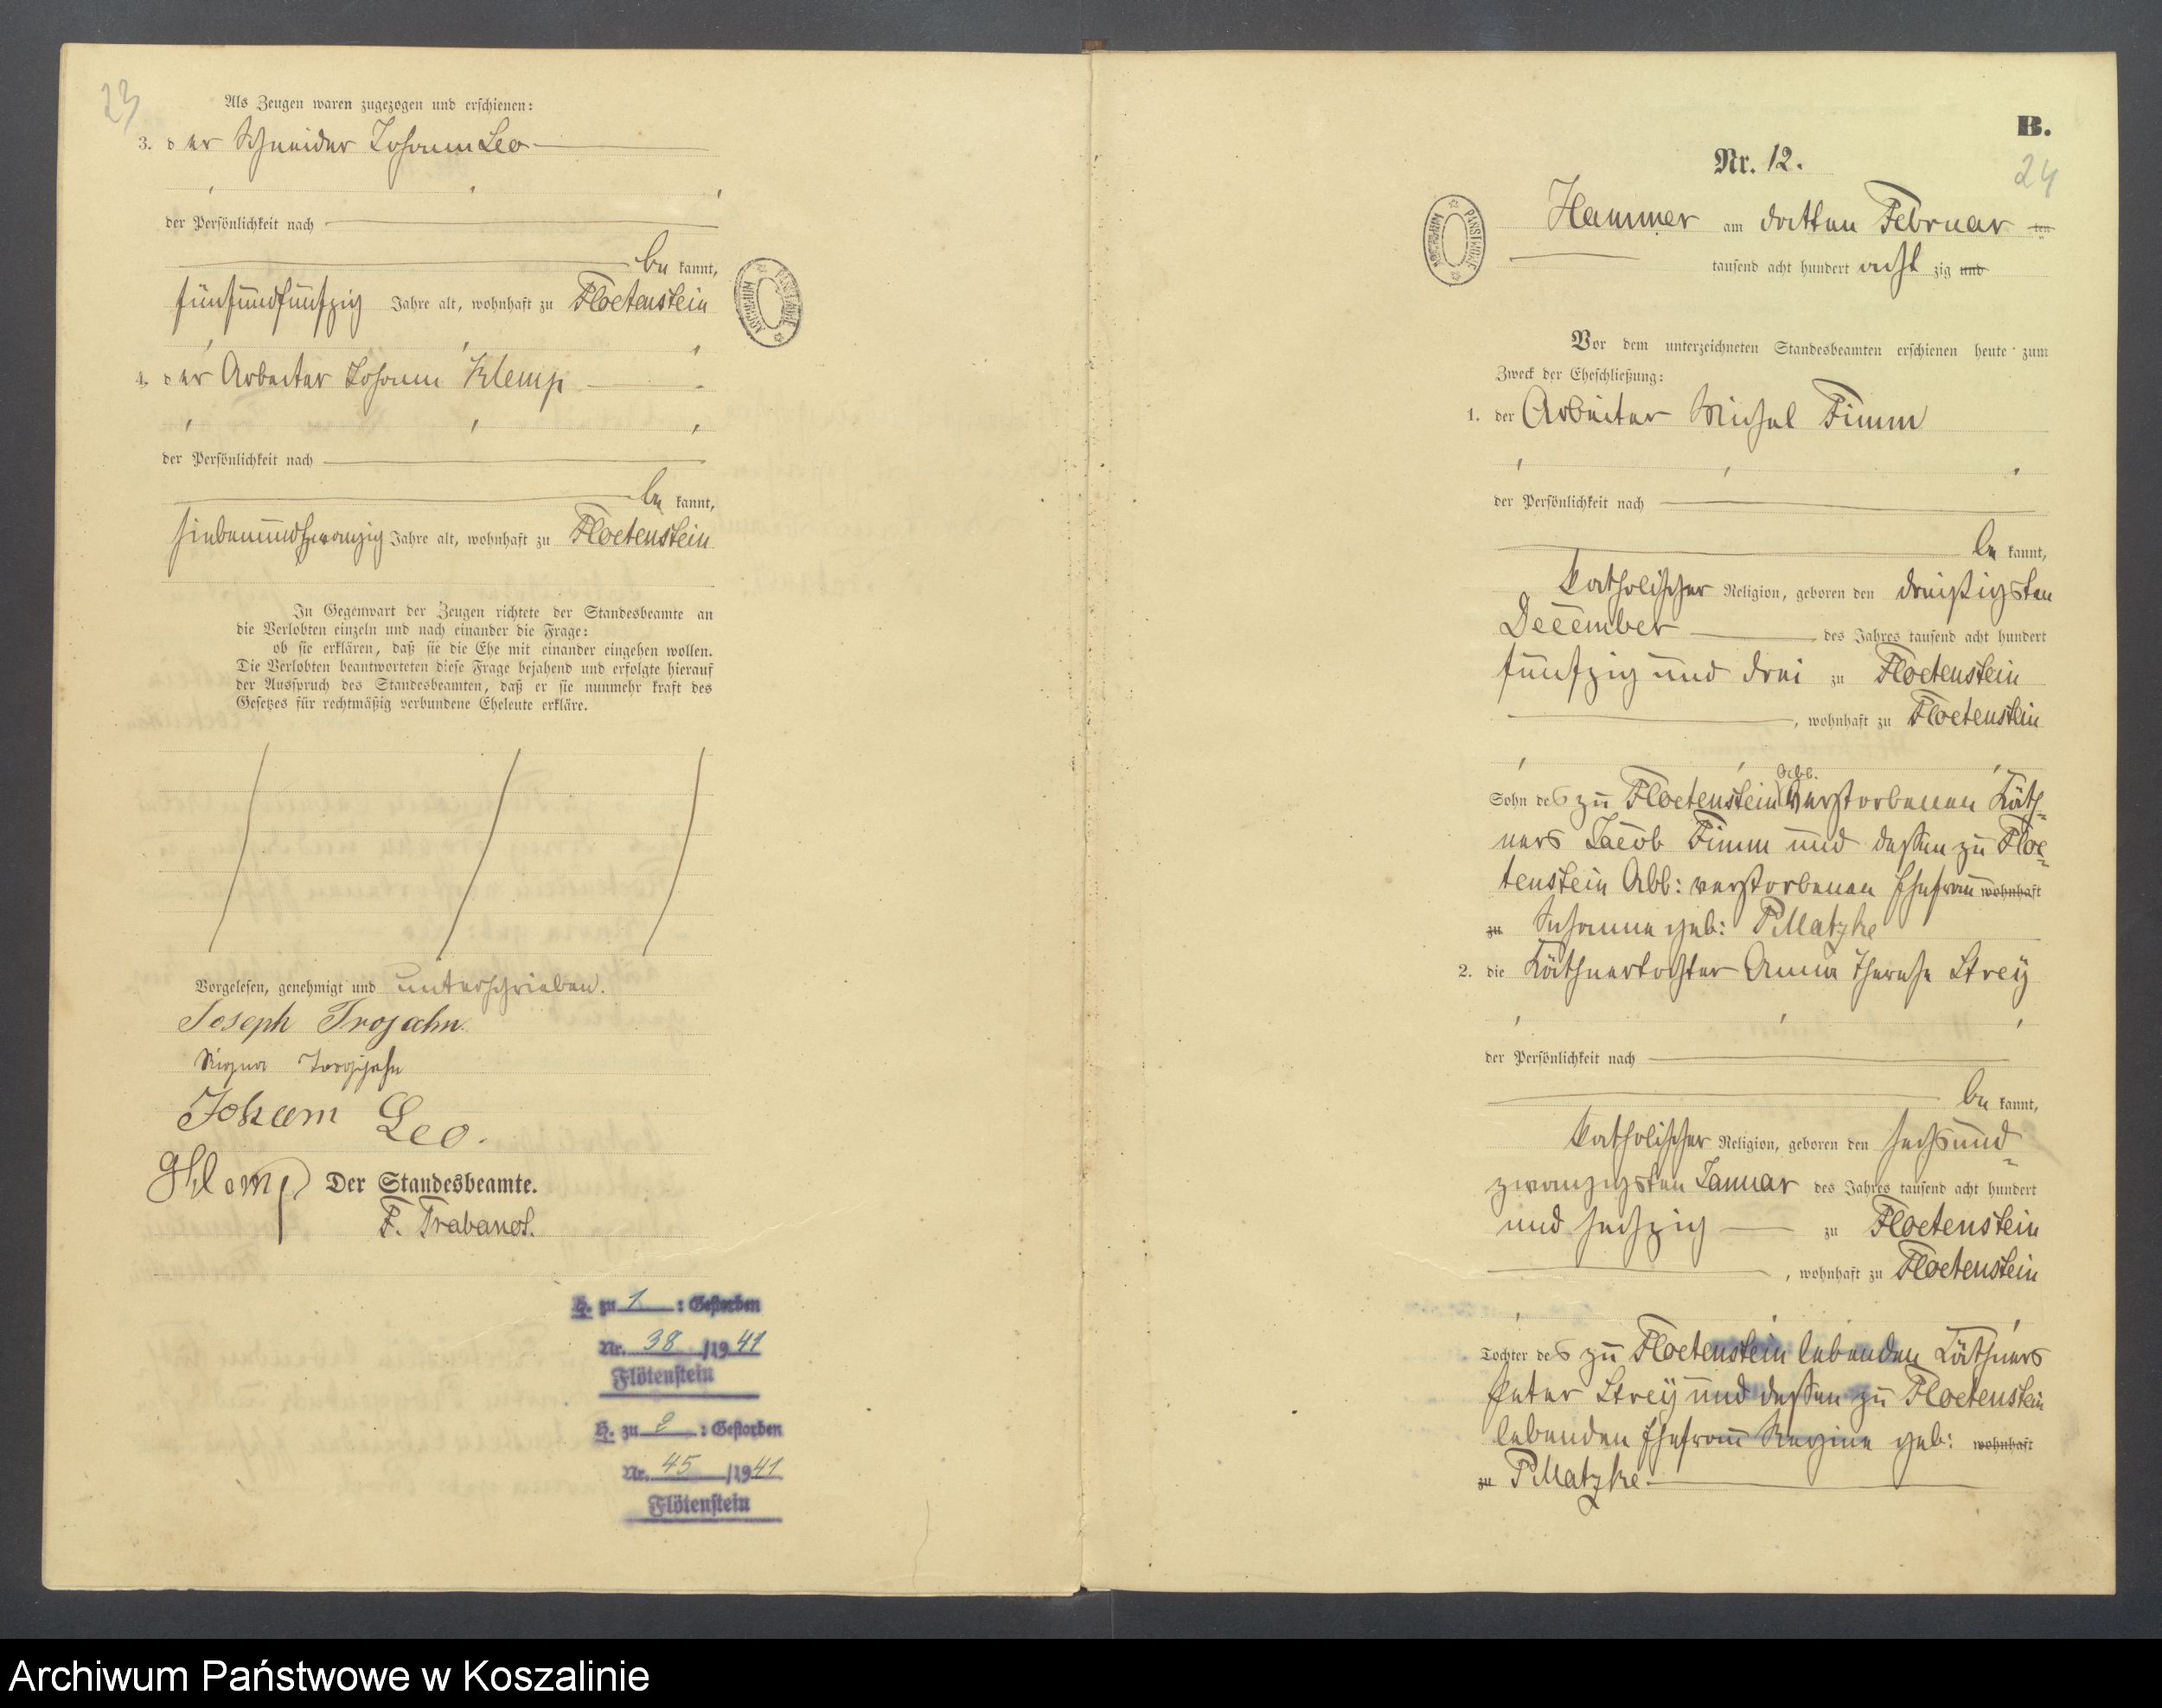 23
Als Zeugen waren zugezogen und erschienen:
3. der Schneider Johann Leo
der Persönlichkeit nach
be kannt,
fünfundfünfzig Jahre alt, wohnhaft zu Floetenstein
4. der Arbeiter Johann Klemp
der Persönlichkeit nach
be kannt,
siebenundzwanzig Jahre alt, wohnhaft zu Floetenstein
In Gegenwart der Zeugen richtete der Standesbeamte an
die Verlobten einzeln und nach einander die Frage:
ob sie erklären, daß sie die Ehe mit einander eingehen wollen.
Die Verlobten beantworteten diese Frage bejahend und erfolgte hierauf
der Ausspruch des Standesbeamten, daß er sie nunmehr kraft des
Gesetzes für rechtmäßig verbundene Eheleute erkläre.
Vorgelesen, genehmigt und unterschrieben.
Joseph Trojahn
Johann Leo.
Der Standesbeamte.
F. Trabandt.
H. zu 1 : Gestorben
Nr. 38 /1941
Flötenstein
H. zu 2 : Gestorben
Nr. 45 /1941
Flötenstein
B.
24
Nr. 12.
Hammer am dritten Februar ten
tausend acht hundert acht zig und
Vor dem unterzeichneten Standesbeamten erschienen heute zum
Zweck der Eheschließung:
1. der Arbeiter Michel Timm
der Persönlichkeit nach
be kannt,
katholischer Religion, geboren den dreißigsten
December des Jahres tausend acht hundert
fünfzig und drei zu Floetenstein
, wohnhaft zu Floetenstein
Abb.
Sohn des zu Floetenstein verstorbenen Käth-
ners Jacob Timm und dessen zu Floe-
tenstein Abb: verstorbenen Ehefrau wohnhaft
zu Susanna geb: P. Matzke
2. die Käthnertochter Anna Therese Strey
der Persönlichkeit nach
be kannt,
katholischer Religion, geboren den sechsund-
zwanzigsten Januar des Jahres tausend acht hundert
und sechzig zu Floetenstein
, wohnhaft zu Floetenstein
Tochter des zu Floetenstein lebenden Käthners
Peter Strey und dessen zu Floetenstein
lebenden Ehefrau Regine geb: wohnhaft
zu P. Matzke
Archiwum Państwowe w Koszalinie